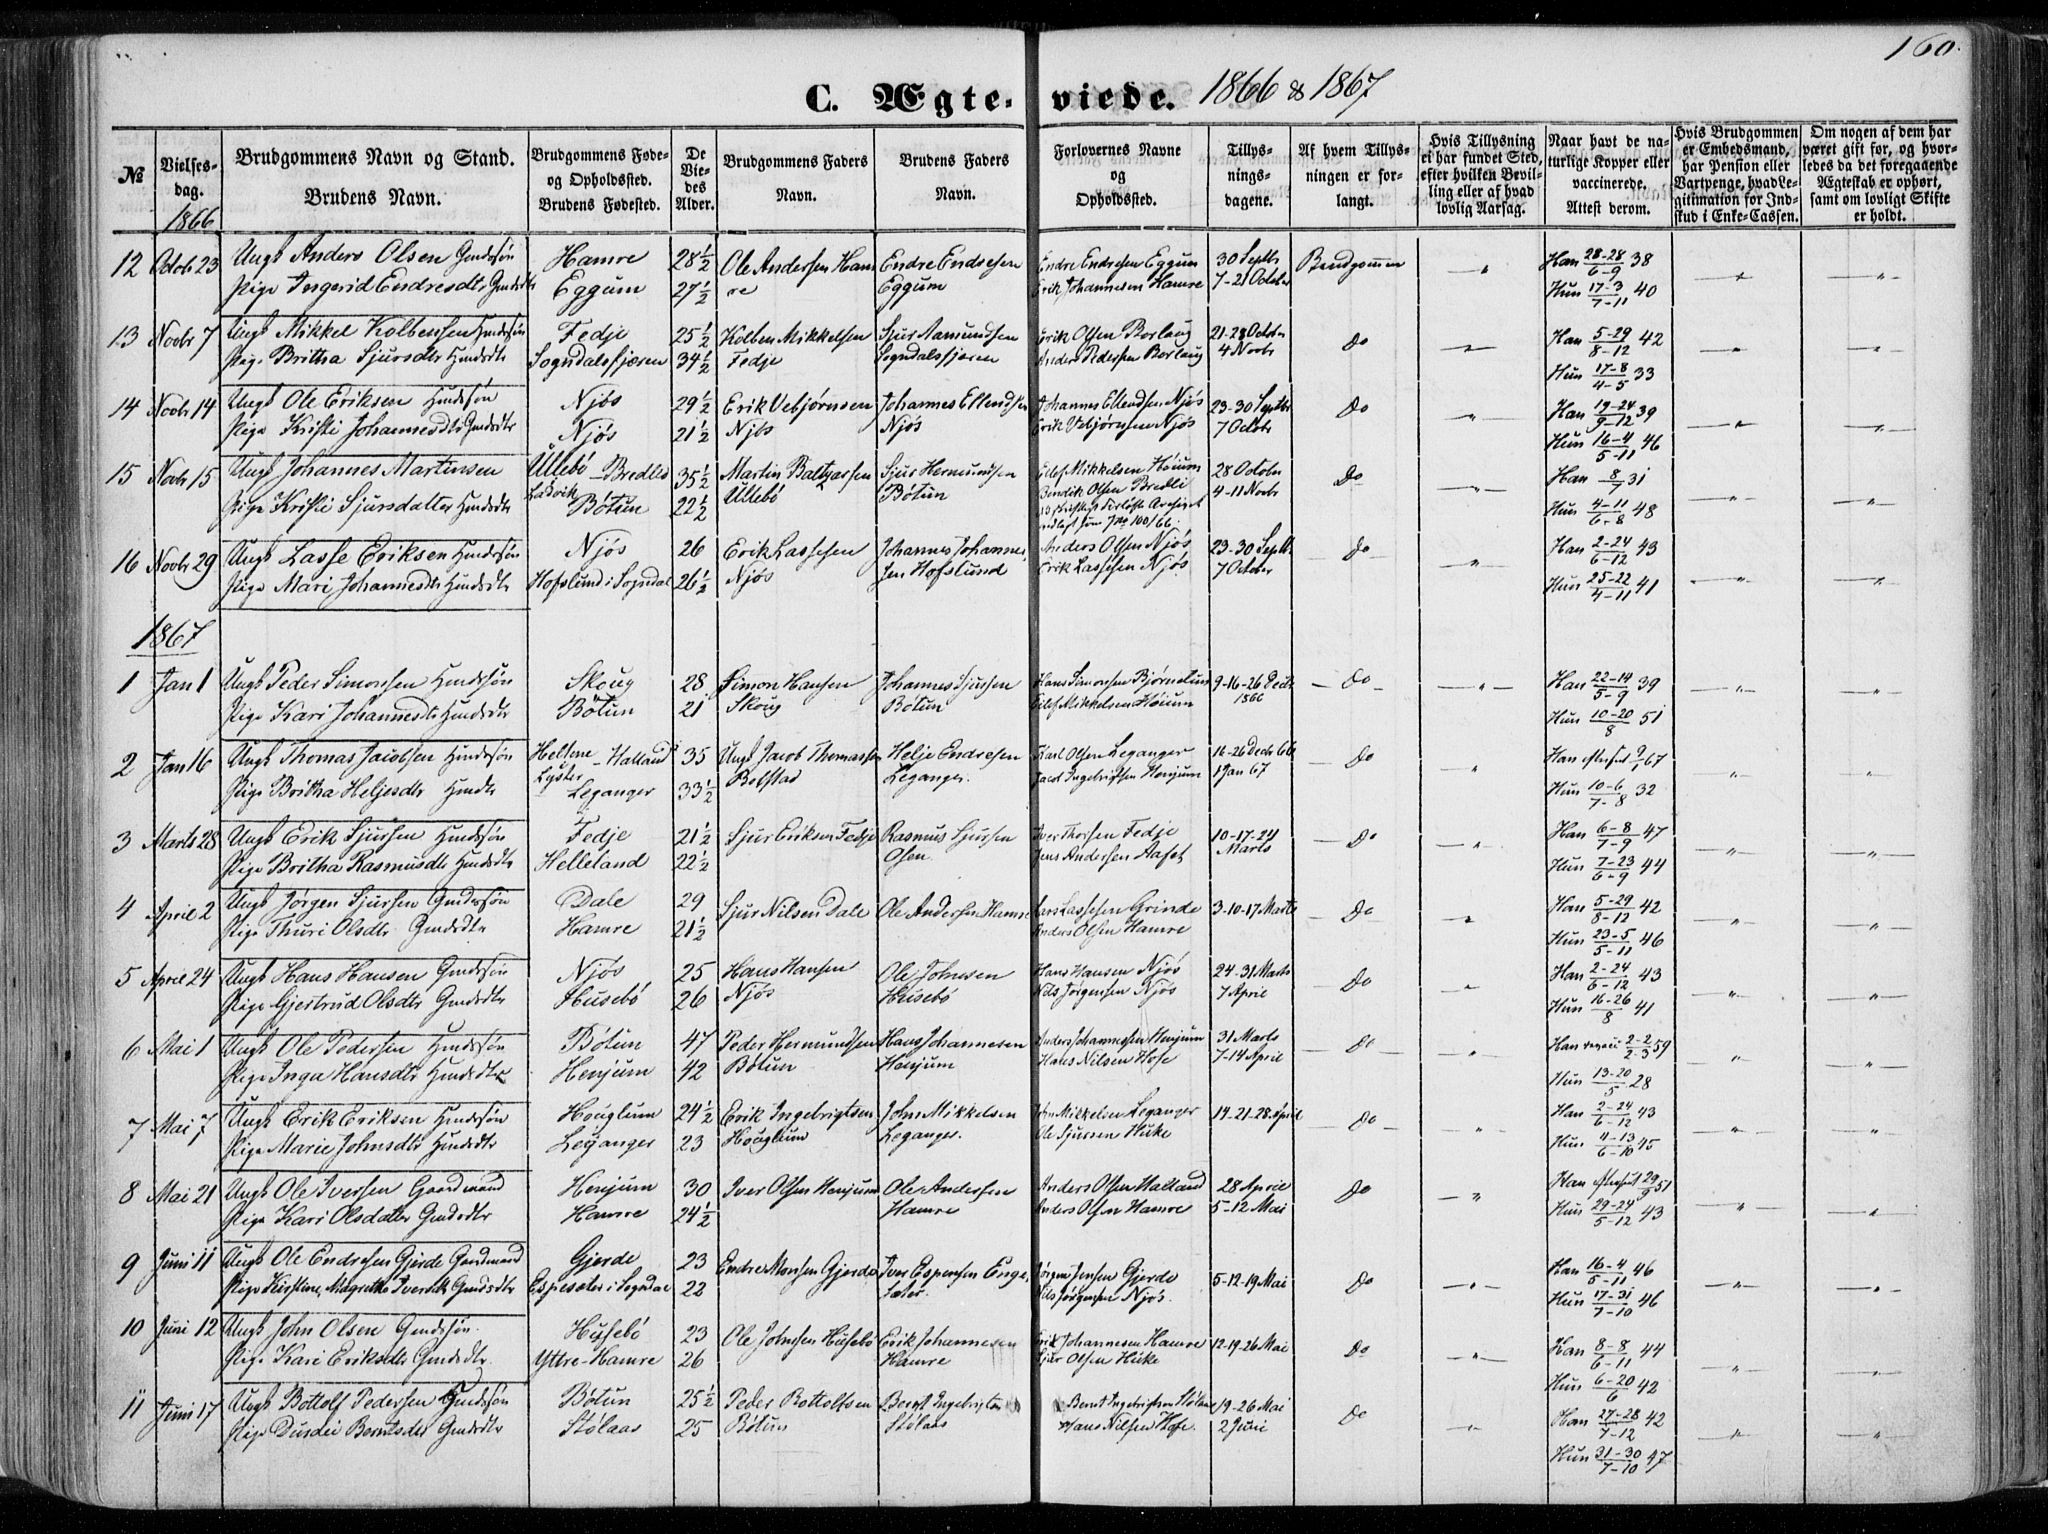 160.
C. Ægte-viede. 1866 & 1867
№
Vielses-dag.
Brudgommens Navn og Stand.
Brudens Navn.
Brudgommens Føde- og Opholdssted.
Brudens Fødested.
De Vie-des Alder.
Brudgommens Faders Navn.
Brudens Faders Navn.
Forlovernes Navne og Opholdssted.
Tillys-nings-dagene.
Af hvem Tillys-ningen er for-langt.
Hvis Tillysning ei har fundet Sted, efter hvilken Bevil-ling eller af hvad lovlig Aarsag.
Naar havt de na-turlige Kopper eller vaccinerede. Attest derom.
Hvis Brudgommen er Embedsmand, har Pension eller Vartpenge, hvad Le-gitimation for Ind-skud i Enke-Cassen.
Om nogen af dem har været gift før, og hvor-ledes da det foregaaende Ægteskab er ophørt, samt om lovligt Skifte er holdt.
1866
12 Octob 23 Ungk Anders Olsen Hamre 28½ Ole Andersen Ham Endre Endresen Endre Endresen Eggum 30 Septbr Brudgommen Han 28-28/6-9 38
Pige Ingerid Endresdtr Eggum 27½ re Eggum Erik Johannesen Hamre 7-21 October Hun 17-3/7-11 40
13 Novbr 7 Ungk Mikkel Kolbensen Fedje 25½ Kolben Mikkelsen Sjur Aamundsen Erik Olsen Borlaug 21-28 Octobr Do Han 5-29/8-12 42
Pige Britha Sjursdtr Sogndalsfjæren 34½ Fedje Sogndalsfjæren Anders Pedersen Borlaug 4 Novbr Hun 17-8/4-5 33
14 Novbr 14 Ungk Ole Eriksen Njøs 29½ Erik Vebjørnsen Johannes Ellendsen Johannes Ellendsen Njøs 23-30 Septbr Do Han 19-24/9-12 39
Pige Kristi Johannesdtr Njøs 21½ Njøs Njøs Erik Vebjørnsen Njøs 7 Octobr Hun 16-4/5-11 46
15 Novbr 15 Ungk Johannes Martinsen Ullebø - Bredli 35½ Martin Baltzarsen Sjur Hermundsen Mikkelsen Høium 28 October Do Han 8/7 31
Pige Kristi Sjursdatter Ladvik Bøtun 22½ Ullebø Bøtun Bendik Olsen Bredli 4-11 Novbr Hun 4-11/6-8 48
16 Novbr 29 Ungk Lasse Eriksen Njøs 26 Erik Lassesen Johannes Johannes- Anders Olsen Njøs 23-30 Septbr Do Han 2-24/6-12 43
Pige Mari Johannesdtr Hofslund i Sogndal 26½ Njøs sen Hofslund Erik Lassesen Njøs 7 October Hun 25-22/4-11 41
1867
1 Jan 1 Ungk Peder Simonsen Skoug 28 Simon Hansen Johannes Sjursen Hans Simonsen 9-16-26 Decbr Do Han 22-14/5-9 39
Pige Kari Johannesdtr Bøtun 21 Skoug Bøtun Mikkelsen Høium 1866 Hun 10-20/8 51
2 Jan 16 Ungk Thomas Jacobsen - Halland 35 Ungk Jacob Thomassen Helje Endresen Karl Olsen Leganger 16-26 Decbr 66 Do Han 9/1 67
Pige Britha Heljesdtr Lyster Leganger 33½ Bolstad Leganger. Jacob Ingebrigtsen Henjum 1 Jan 67 Hun 10-6/7-8 32
3 Marts 28 Ungk Erik Sjursen Fedje 21½ Sjur Eriksen Fedje Rasmus Sjursen Iver Thorsen Fedje 10-17-24 Do Han 6-8/7-9 47
Pige Britha Rasmusdtr Helleland 22½ Osen. Jens Andersen Aaset Marts Hun 7-23/6-9 44
4 April 2 Ungk Jørgen Sjursen Dale 29 Sjur Nilsen Dale Ole Andersen Hamre Lars Lassesen Grinde 3-10-17 Marts Do Han 5-29/8-12 42
Pige Thuri Olsdtr Hamre 21½ Anders Olsen Hamre Hun 23-5/5-11 46
5 April 24 Ungk Hans Hansen Njøs 25 Hans Hansen Ole Johnsen Hans Hansen Njøs 24-31 Marts Do Han 2-24/6-12 43
Pige Gjertrud Olsdtr Husebø 26 Njøs Husebø Nils Jørgensen Njøs 7 April Hun 16-26/8 41
6 Mai 1 Ungk Ole Pedersen Bøtun 47 Peder Hermundsen Hans Johannesen Anders Johannessen Henjum 31 Marts Do Han 2-2/2-3 59
Pige Inga Hansdtr Henjum 42 Bøtun Henjum Hans Nilsen Hofe 7-14 April Hun 13-20/5 28
7 Mai 7 Ungk Erik Eriksen Houglum 24½ Erik Ingebrigtsen John Mikkelsen John Mikkelsen Leganger 14-21-28 April Do Han 2-24/6-12 43
Pige Marie Johnsdtr Leganger 23 Houglum Leganger. Ole Sjursen Huke Hun 4-13/6-10 45
8 Mai 21 Ungk Ole Iversen Gaardmand Henjum 30 Iver Olsen Henjum Ole Andersen Anders Olsen Halland 28 April Do Han 29/9 51
Pige Kari Olsdatter Hamre 24½ Hamre Anders Olsen Hamre 5-12 Mai Hun 29-24/5-12 43
9 Juni 11 Ungk Ole Endresen Gjerde Gaardmand Gjerde 23 Endre Monsen Gjerde Iver Espensen Enge- Jørgen Jensen Gjerde 5-12-19 Mai Do Han 16-4/5-11 46
Pige Kirstine Magrethe Iversdtr i Sogndal 22 sæter. Nils Jørgensen Njøs. Hun 17-31/7-10 46
10 Juni 12 Ungk John Olsen Husebø 23 Ole Johnsen Husebø Erik Johannesen Erik Johannesen Hamre 12-19-26 Mai Do Han 8-8/6-11 44
Pige Kari Eriksdtr Yttre-Hamre 26 Hamre Sjur Olsen Huke Hun 6-20/6 42
11 Juni 17 Ungk Bottolf Pedersen Bøtun 25½ Peder Bottolfsen Bernt Ingebrigtsen Bernt Ingebrigtsen Stølaas 19-26 Mai Do Han 27-28/7-12 42
Pige Durdei Berntsdtr Stølaas 25 Bøtun Stølaas Hans Nilsen Hofe. 2 Juni Hun 31-30/7-10 47